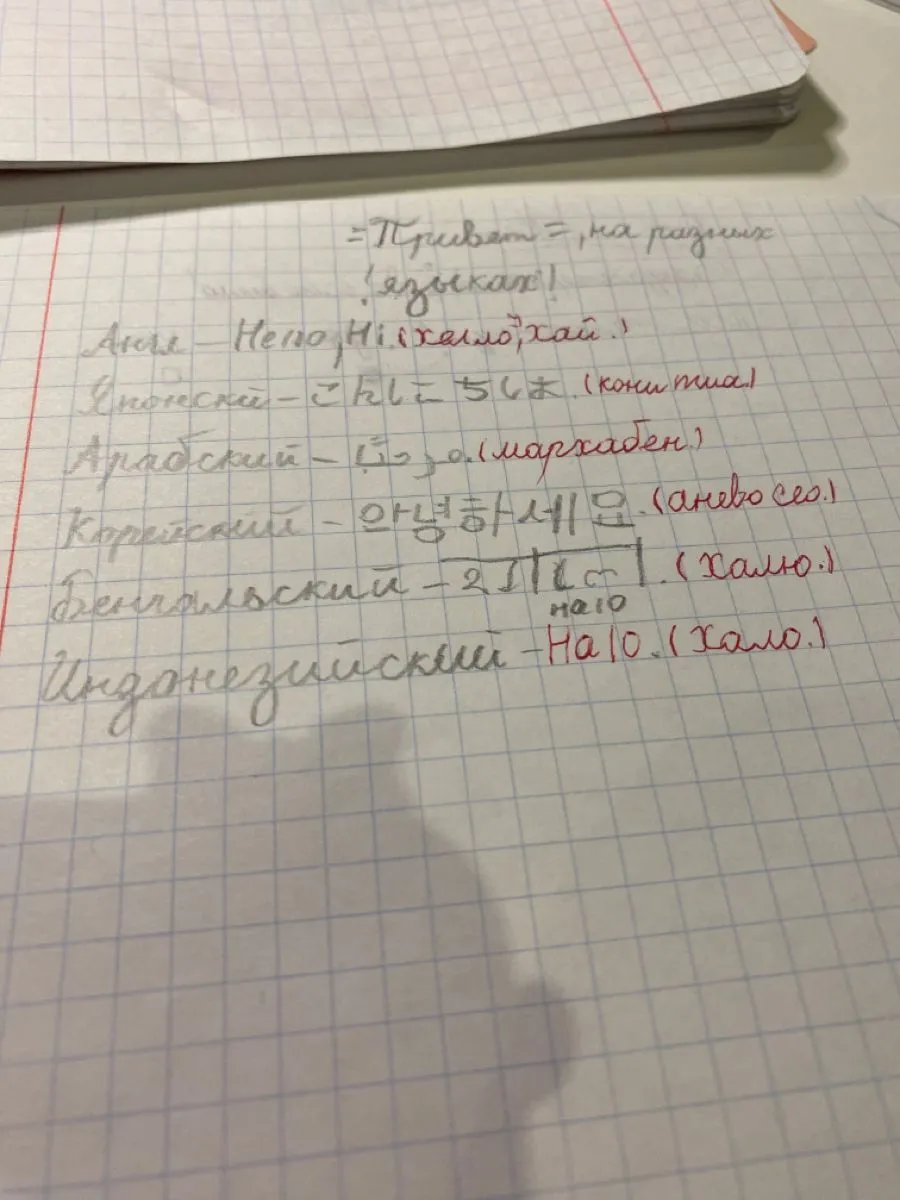 =Привет=, на разных
!языках!
Англ – Hello, Hi. (хелло, хай.)
Японский – こんにちは. (кони тиа)
Арабский – مرحبًا. (мархабен.)
Корейский – 안녕하세요. (анево сео.)
Бенгальский – হ্যালো. (Халю.)
Halo
Индонезийский – Halo. (Хало.)